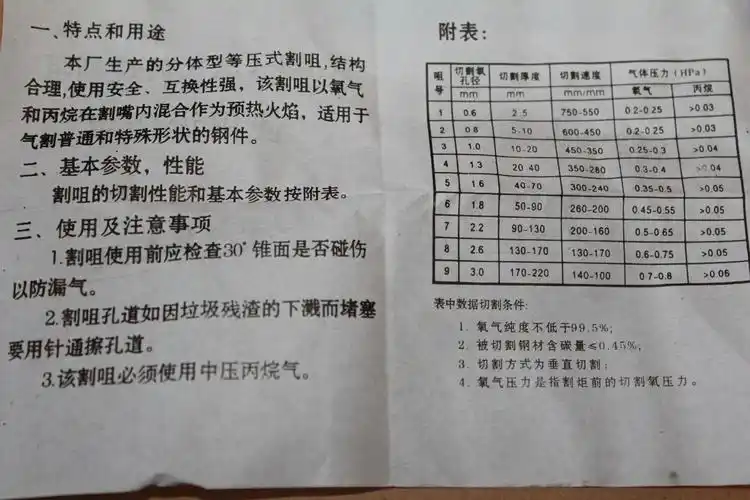 一、特点和用途
本厂生产的分体型等压式割咀,结构
合理,使用安全、互换性强，该割咀以氧气
和丙烷在割嘴内混合作为预热火焰，适用于
气割普通和特殊形状的钢件。
二、基本参数，性能
割咀的切割性能和基本参数按附表。
三、使用及注意事项
1.割咀使用前应检查30°锥面是否碰伤
以防漏气。
2.割咀孔道如因垃圾残渣的下溅而堵塞
要用针通擦孔道。
3.该割咀必须使用中压丙烷气。
附表:
咀号 切割氧孔径 切割厚度 切割速度 气体压力（HPa）
mm mm mm/mm 氧气 丙烷
1 0.6 2 5 750-550 0.2-0.25 >0.03
2 0.8 5-10 600-450 0.2-0.25 >0.03
3 1.0 10-20 450-350 0.25-0.3 >0.04
4 1.3 20-40 350-280 0.3-0.4 >0.04
5 1.6 40-70 300-240 0.35-0.5 >0.05
6 1.8 50-90 260-200 0.45-0.55 >0.05
7 2.2 90-130 200-160 0.5-0.65 >0.05
8 2.6 130-170 130-170 0.6-0.75 >0.05
9 3.0 170-220 140-100 0.7-0.8 >0.06
表中数据切割条件:
1. 氧气纯度不低于99.5%;
2. 被切割钢材含碳量≤0.45%;
3. 切割方式为垂直切割;
4. 氧气压力是指割炬前的切割氧压力。